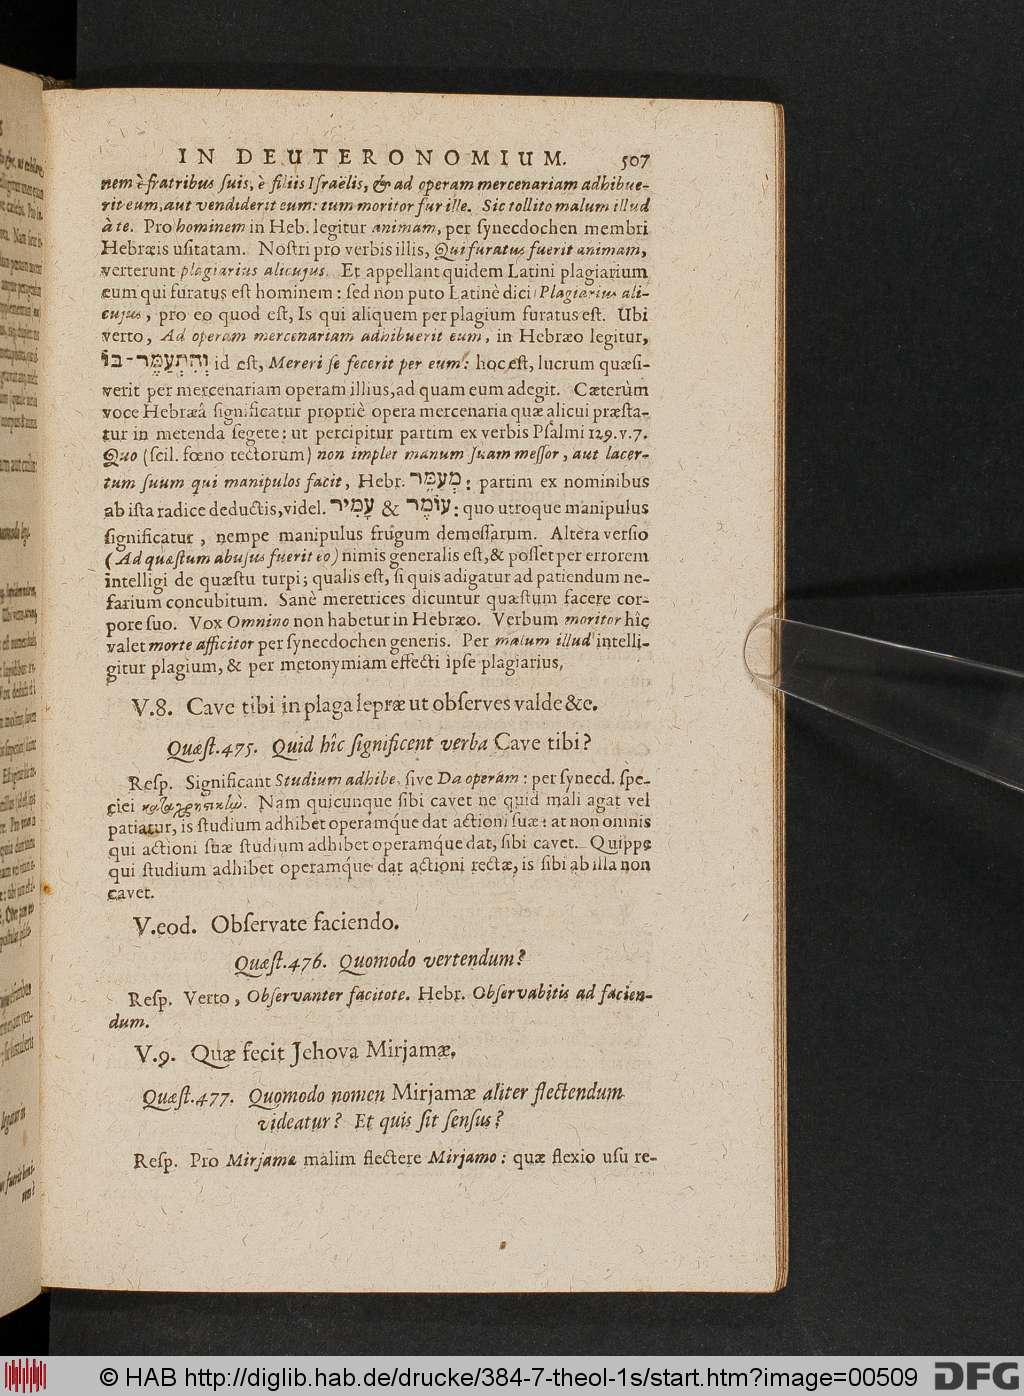 IN DEUTERONOMIUM. 507
nem è fratribus suis, è filiis Israëlis, & ad operam mercenariam adhibue-
rit eum, aut vendiderit eum: tum moritor fur ille. Sic tollito malum illud
à te. Pro hominem in Heb. legitur animam, per synecdochen membri
Hebræis usitatam. Nostri pro verbis illis, Qui furatus fuerit animam,
verterunt plagiarius alicujus. Et appellant quidem Latini plagiarium
eum qui furatus est hominem: sed non puto Latinè dici Plagiarius ali-
cujus, pro eo quod est, Is qui aliquem per plagium furatus est. Ubi
verto, Ad operam mercenariam adhibuerit eum, in Hebræo legitur,
וְהִתְעַמֶּר־בּוֹ id est, Mereri se fecerit per eum: hoc est, lucrum quæsi-
verit per mercenariam operam illius, ad quam eum adegit. Cæterùm
voce Hebræâ significatur propriè opera mercenaria quæ alicui præsta-
tur in metenda segete: ut percipitur partim ex verbis Psalmi 129.v.7.
Quo (scil. fœno tectorum) non implet manum suam messor, aut lacer-
tum suum qui manipulos facit, Hebr. מְעַמֵּר: partim ex nominibus
ab ista radice deductis, videl. עָמִיר & עוֹמֶר: quo utroque manipulus
significatur, nempe manipulus frugum demessarum. Altera versio
(Ad quæstum abusus fuerit eo) nimis generalis est, & posset per errorem
intelligi de quæstu turpi; qualis est, si quis adigatur ad patiendum ne-
farium concubitum. Sanè meretrices dicuntur quæstum facere cor-
pore suo. Vox Omnino non habetur in Hebræo. Verbum moritor hîc
valet morte afficitor per synecdochen generis. Per malum illud intelli-
gitur plagium, & per metonymiam effecti ipse plagiarius,
V.8. Cave tibi in plaga lepræ ut observes valde &c.
Quæst.475. Quid hîc significent verba Cave tibi?
Resp. Significant Studium adhibe, sive Da operam: per synecd. spe-
ciei καταχρηστικῶς. Nam quicunque sibi cavet ne quid mali agat vel
patiatur, is studium adhibet operamq́ue dat actioni suæ: at non omnis
qui actioni suæ studium adhibet operamq́ue dat, sibi cavet. Quippe
qui studium adhibet operamq́ue dat actioni rectæ, is sibi ab illa non
cavet.
V.eod. Observate faciendo.
Quæst.476. Quomodo vertendum?
Resp. Verto, Observanter facitote. Hebr. Observabitis ad facien-
dum.
V.9. Quæ fecit Jehova Mirjamæ.
Quæst.477. Quomodo nomen Mirjamæ aliter flectendum
videatur? Et quis sit sensus?
Resp. Pro Mirjamæ malim flectere Mirjamo: quæ flexio usu re-
© HAB http://diglib.hab.de/drucke/384-7-theol-1s/start.htm?image=00509
DFG